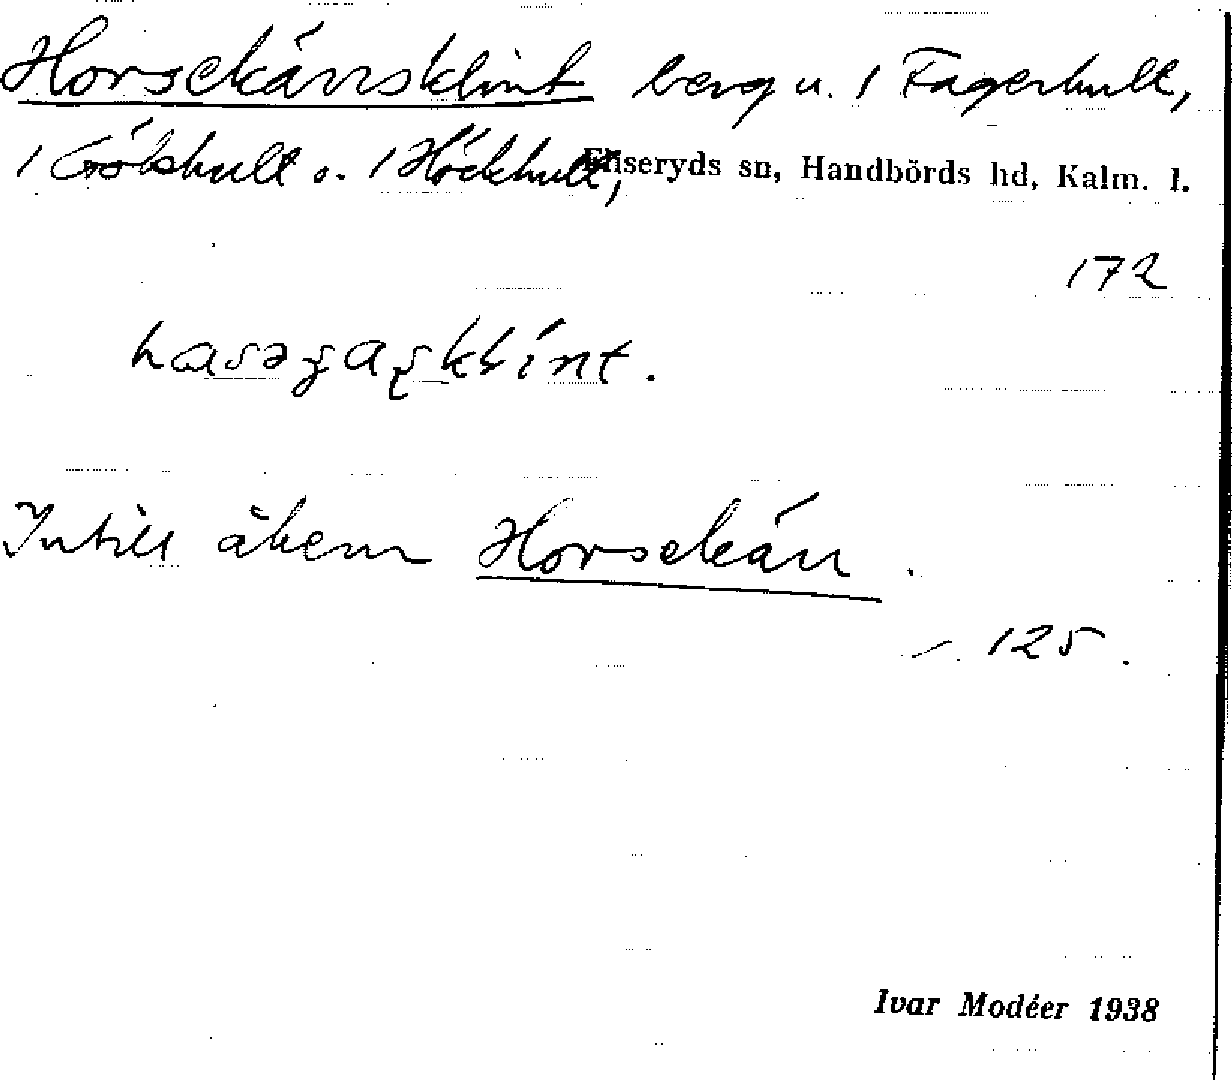 Horsekärrsklint berg u. 1 Fagerhult,
1 Gölshult o. 1 Höckhult, Fliseryds sn, Handbörds hd, Kalm. l.
172
Intill åkern Horsekärr.
125.
Ivar Modéer 1938